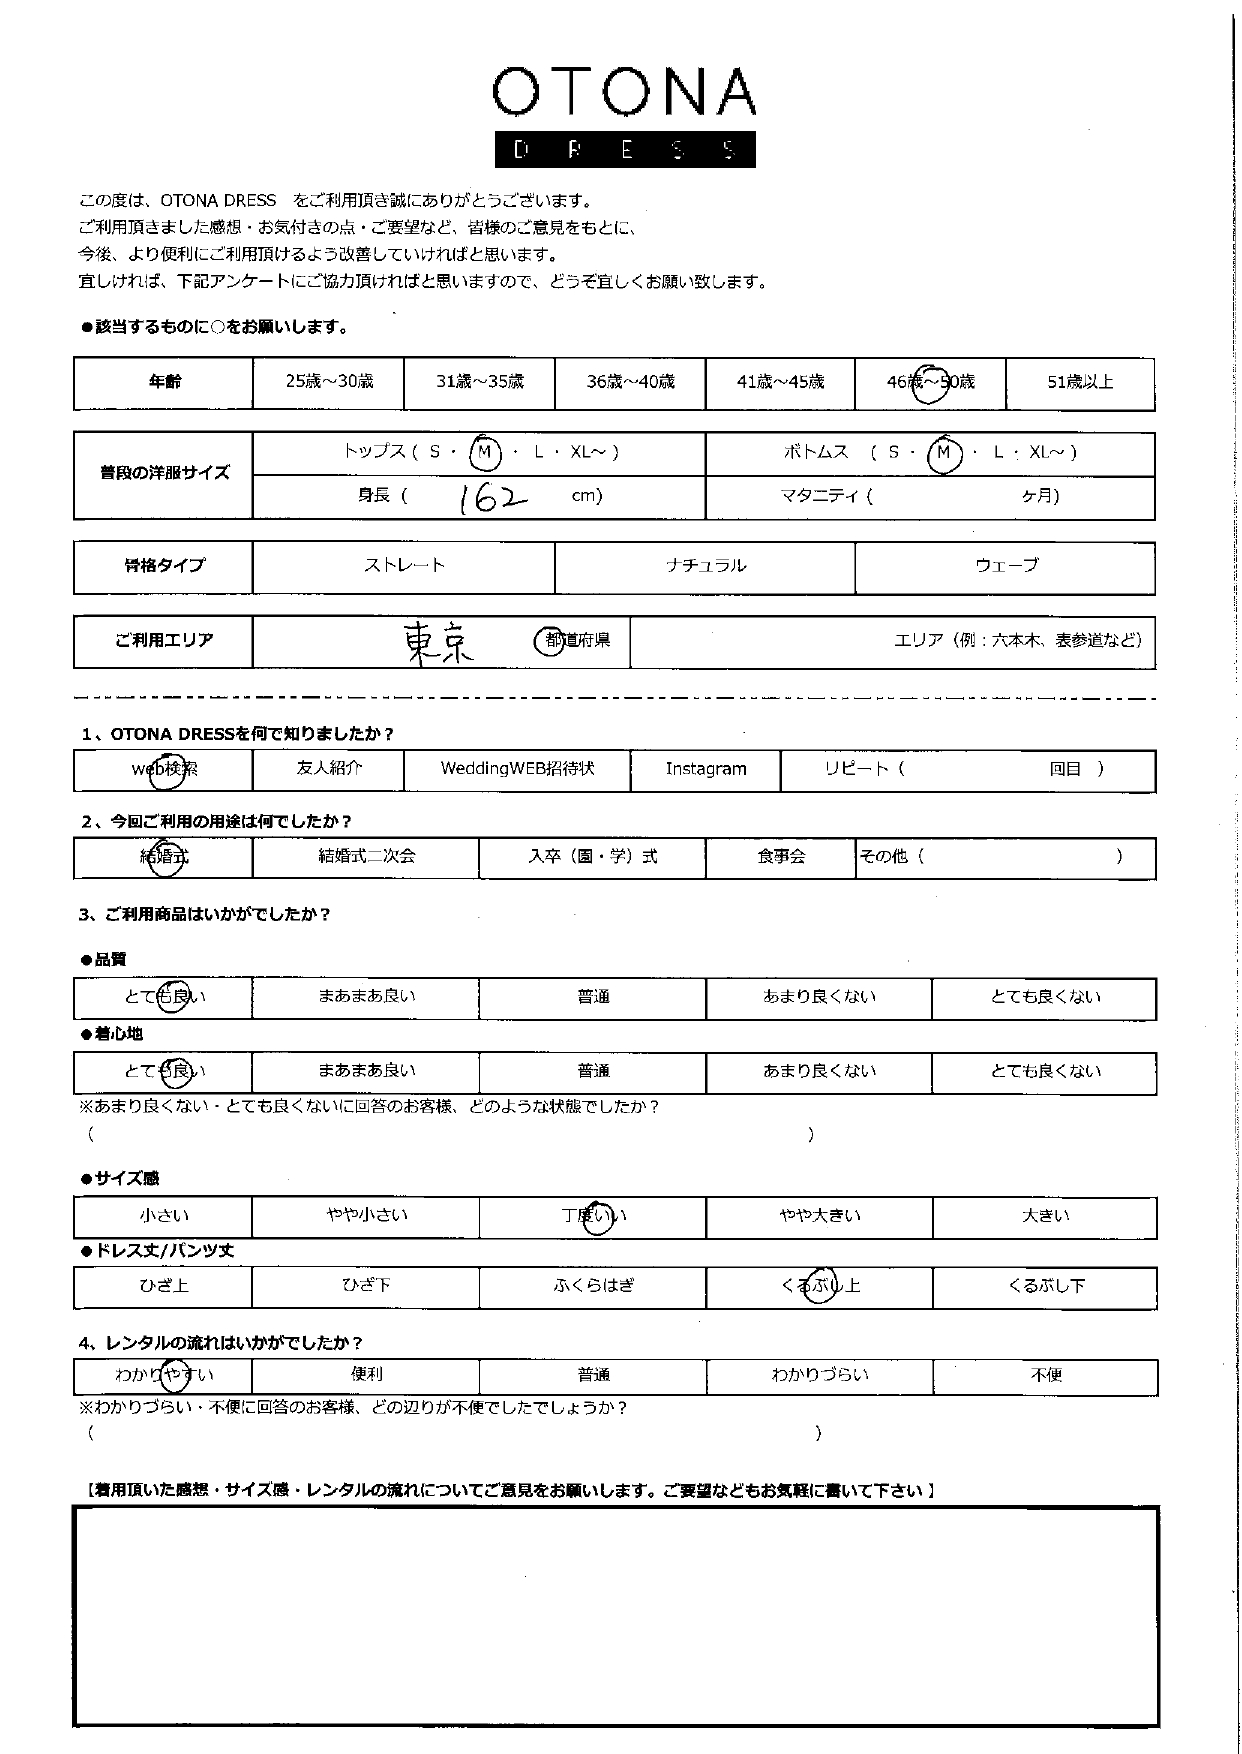 OTONA
DRESS
この度は、OTONA DRESS　をご利用頂き誠にありがとうございます。
ご利用頂きました感想・お気付きの点・ご要望など、皆様のご意見をもとに、
今後、より便利にご利用頂けるよう改善していければと思います。
宜しければ、下記アンケートにご協力頂ければと思いますので、どうぞ宜しくお願い致します。
●該当するものに○をお願いします。
年齢 25歳～30歳 31歳～35歳 36歳～40歳 41歳～45歳 46歳～50歳 51歳以上
普段の洋服サイズ トップス ( S ・ M ・ L ・ XL～ ) ボトムス ( S ・ M ・ L ・ XL～ )
身長 ( 162 cm) マタニティ ( ヶ月)
骨格タイプ ストレート ナチュラル ウェーブ
ご利用エリア 東京 都道府県 エリア（例：六本木、表参道など）
1、OTONA DRESSを何で知りましたか？
web検索 友人紹介 WeddingWEB招待状 Instagram リピート（ 回目 ）
2、今回ご利用の用途は何でしたか？
結婚式 結婚式二次会 入卒（園・学）式 食事会 その他（ ）
3、ご利用商品はいかがでしたか？
●品質
とても良い まあまあ良い 普通 あまり良くない とても良くない
●着心地
とても良い まあまあ良い 普通 あまり良くない とても良くない
※あまり良くない・とても良くないに回答のお客様、どのような状態でしたか？
（ ）
●サイズ感
小さい やや小さい 丁度いい やや大きい 大きい
●ドレス丈/パンツ丈
ひざ上 ひざ下 ふくらはぎ くるぶし上 くるぶし下
4、レンタルの流れはいかがでしたか？
わかりやすい 便利 普通 わかりづらい 不便
※わかりづらい・不便に回答のお客様、どの辺りが不便でしたでしょうか？
（ ）
【着用頂いた感想・サイズ感・レンタルの流れについてご意見をお願いします。ご要望などもお気軽に書いて下さい】